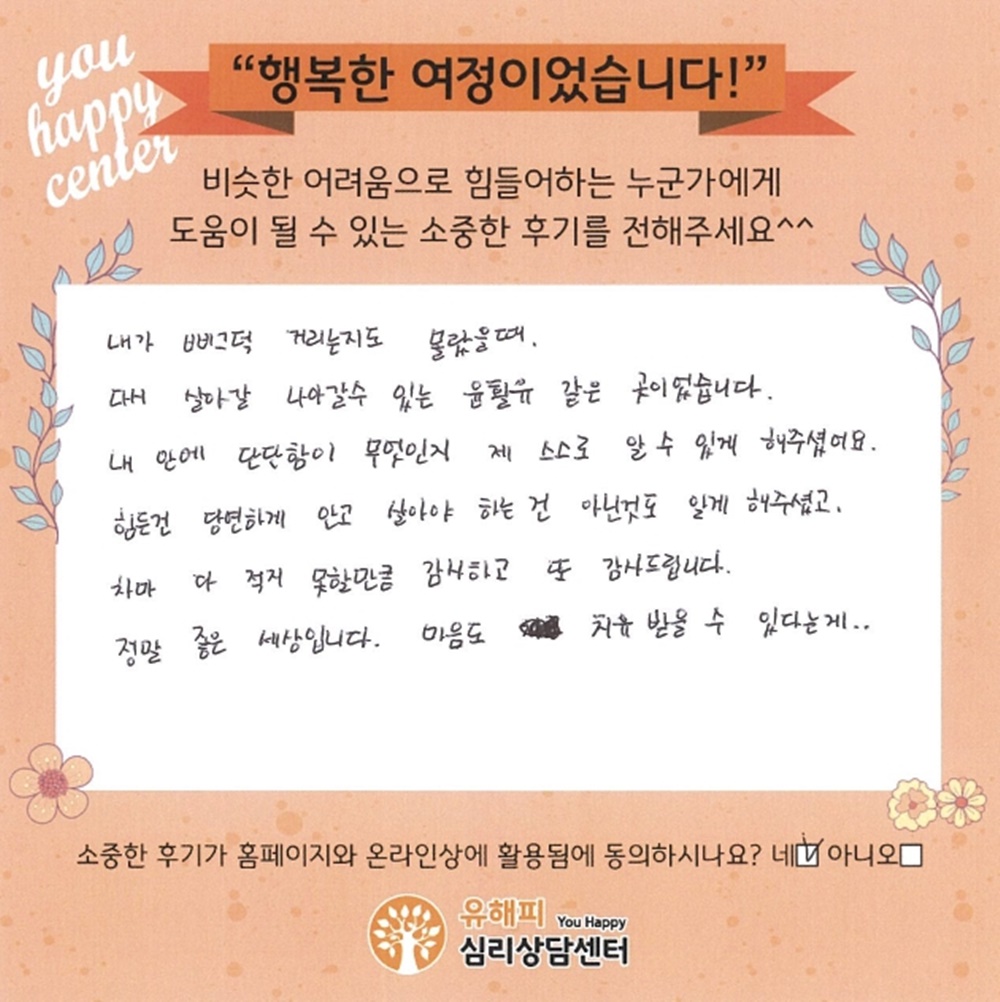 you
happy
center
“행복한 여정이었습니다!”
비슷한 어려움으로 힘들어하는 누군가에게
도움이 될 수 있는 소중한 후기를 전해주세요^^
내가 삐그덕 거리는지도 몰랐을때.
다시 살아갈 나아갈수 있는 윤활유 같은 곳이었습니다.
내 안에 단단함이 무엇인지 제 스스로 알 수 있게 해주셨어요.
힘든건 당연하게 안고 살아야 하는 건 아닌것도 알게 해주셨고.
차마 다 적지 못할만큼 감사하고 또 감사드립니다.
정말 좋은 세상입니다. 마음도 치유 받을 수 있다는게..
소중한 후기가 홈페이지와 온라인상에 활용됨에 동의하시나요? 네☑ 아니오☐
유해피 You Happy
심리상담센터